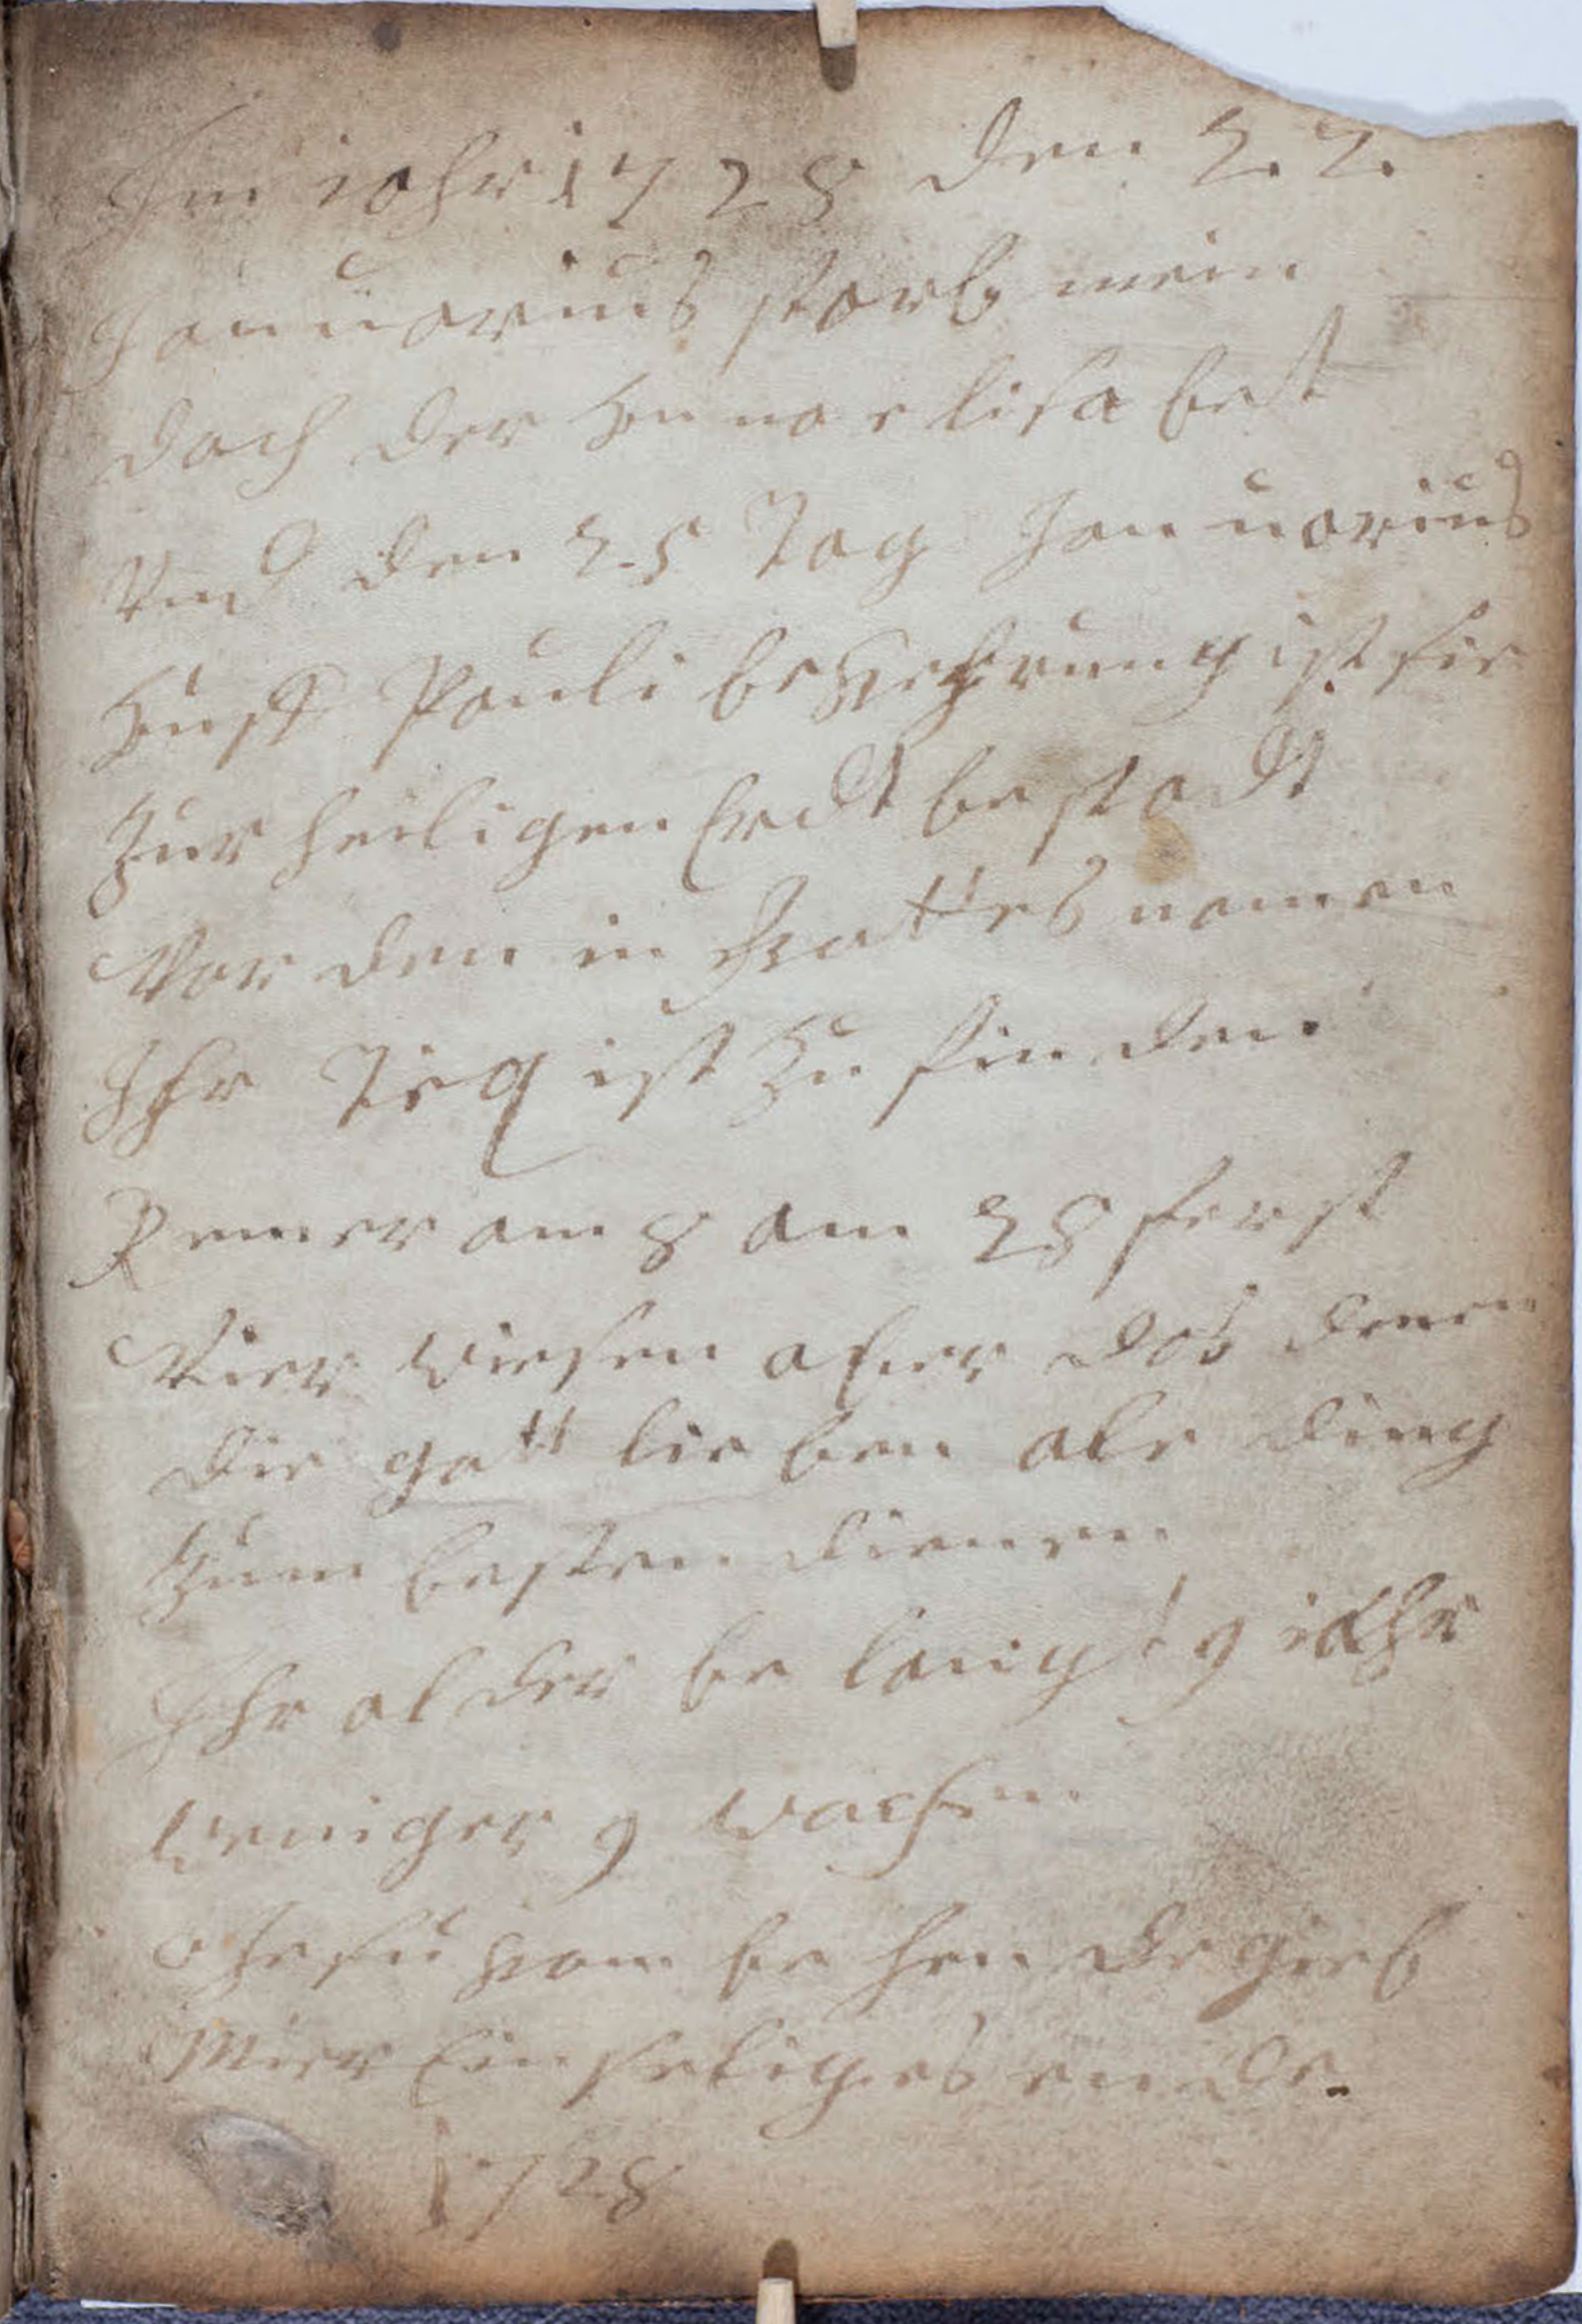 Im iahr 1728 den 22
Januarius starb mein
dach der Anna elisabeht
Vnd den 25 Tag Januarius
Auff Pauli bekehrung ist sie
Zur heiligen Erdt bestadt
Worden in Gottes namen
Ihr Teq ist Zu finden
Remer am 8 am 28 ferst
Wier wiesen aber das denen
die gott lieben ale ding
Zum besten dienen
Ihr alder be langt 9 iahr
weniger 9 wachen
o Jesu kom be hen de gieb
Mier Ein seliges ende
1728